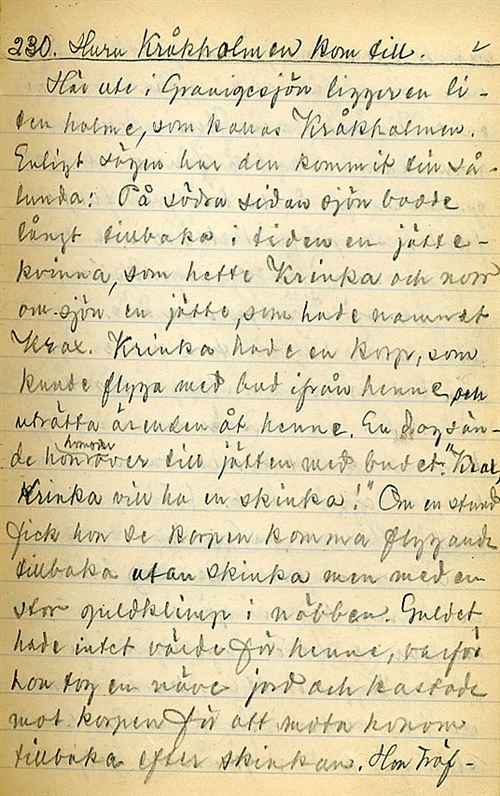 230. Huru Kråkholmen kom till.
Här ute i Gransjesjön ligger en li-
ten holme, som kallas Kråkholmen.
Enligt sägen har den kommit till så-
lunda: På södra sidan sjön bodde
långt tillbaka i tiden en jätte-
kvinna, som hette Krinka och norr
om sjön en jätte, som hade namnet
Krax. Krinka hade en korp, som
kunde flyga med bud ifrån henne och
uträtta ärenden åt henne. En dag sän-
de hon över till jätten med budet: "Krax,
Krinka vill ha en skinka!" Om en stund
fick hon se korpen komma flygande
tillbaka utan skinka men med en
stor guldklimp i näbben. Guldet
hade intet värde för henne, varför
hon tog en näve jord och kastade
mot korpen för att mota honom
tillbaka efter skinkan. Hon träf-